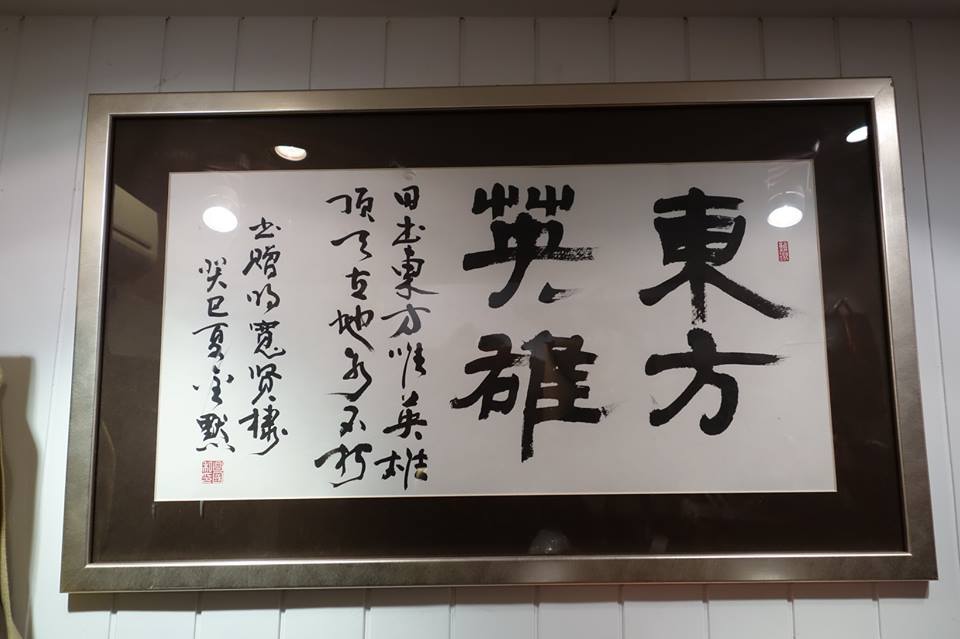 東方
英雄
日出東方唯英雄
頂天立地永不朽
書贈明寬賢棣
癸巳夏金默